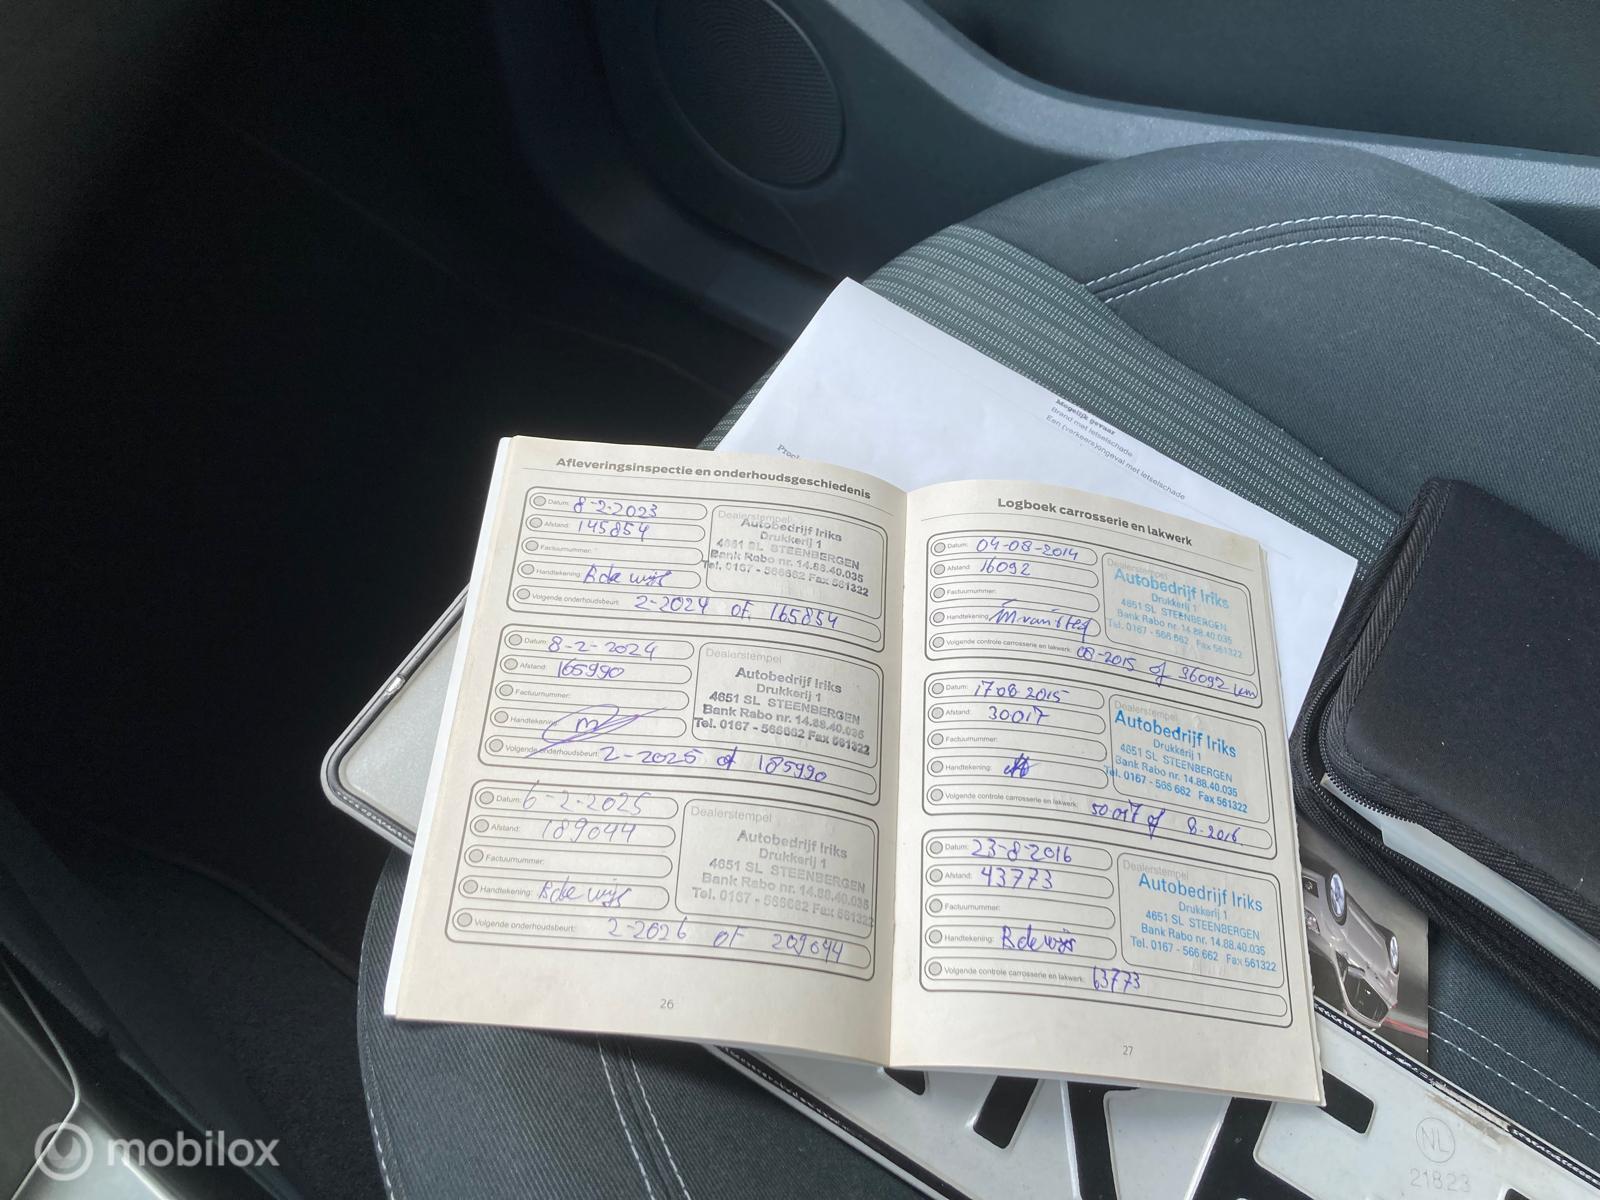 Mogelijk gevaar
Brand met letselschade
Een (verkeers)ongeval met letselschade
Afleveringsinspectie en onderhoudsgeschiedenis
Datum: 8-2-2023
Afstand: 145854
Factuurnummer:
Handtekening: R de wijs
Volgende onderhoudsbeurt: 2-2024 of 165854
Dealerstempel
Autobedrijf Iriks
Drukkerij 1
4651 SL STEENBERGEN
Bank Rabo nr. 14.88.40.035
Tel. 0167 - 566662 Fax 561322
Datum: 8-2-2024
Afstand: 165990
Factuurnummer:
Handtekening:
Volgende onderhoudsbeurt: 2-2025 of 185990
Dealerstempel
Autobedrijf Iriks
Drukkerij 1
4651 SL STEENBERGEN
Bank Rabo nr. 14.88.40.035
Tel. 0167 - 566662 Fax 561322
Datum: 6-2-2025
Afstand: 189044
Factuurnummer:
Handtekening: R de wijs
Volgende onderhoudsbeurt: 2-2026 of 209044
Dealerstempel
Autobedrijf Iriks
Drukkerij 1
4651 SL STEENBERGEN
Bank Rabo nr. 14.88.40.035
Tel. 0167 - 566662 Fax 561322
26
Logboek carrosserie en lakwerk
Datum: 04-08-2014
Afstand: 16092
Factuurnummer:
Handtekening:
Volgende controle carrosserie en lakwerk: 08-2015 of 36092 km
Dealerstempel
Autobedrijf Iriks
Drukkerij 1
4651 SL STEENBERGEN
Bank Rabo nr. 14.88.40.035
Tel. 0167 - 566 662 Fax 561322
Datum: 17 08 2015
Afstand: 30017
Factuurnummer:
Handtekening:
Volgende controle carrosserie en lakwerk: 50017 of 8-2016
Dealerstempel
Autobedrijf Iriks
Drukkerij 1
4651 SL STEENBERGEN
Bank Rabo nr. 14.88.40.035
Tel. 0167 - 566 662 Fax 561322
Datum: 23-8-2016
Afstand: 43773
Factuurnummer:
Handtekening: R de wijs
Volgende controle carrosserie en lakwerk: 63773
Dealerstempel
Autobedrijf Iriks
Drukkerij 1
4651 SL STEENBERGEN
Bank Rabo nr. 14.88.40.035
Tel. 0167 - 566 662 Fax 561322
27
NL
21823
mobilox